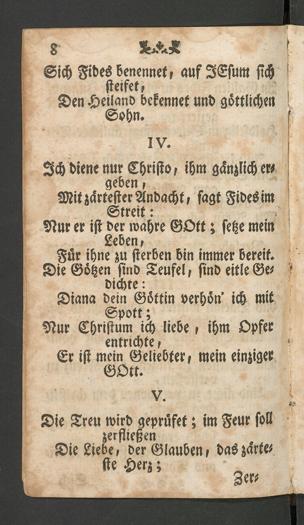 8
Sich Fides benennet, auf JEsum sich
steifet,
Den Heiland bekennet und göttlichen
Sohn.
IV.
Ich diene nur Christo, ihm gänzlich er-
geben,
Mit zärtester Andacht, sagt Fides im
Streit:
Nur er ist der wahre GOtt; setze mein
Leben,
Für ihne zu sterben bin immer bereit.
Die Götzen sind Teufel, sind eitle Ge-
dichte:
Diana dein Göttin verhön' ich mit
Spott;
Nur Christum ich liebe, ihm Opfer
entrichte,
Er ist mein Geliebter, mein einziger
GOtt.
V.
Die Treu wird geprüfet; im Feur soll
zerfließen
Die Liebe, der Glauben, das zärte-
ste Herz;
Zer-